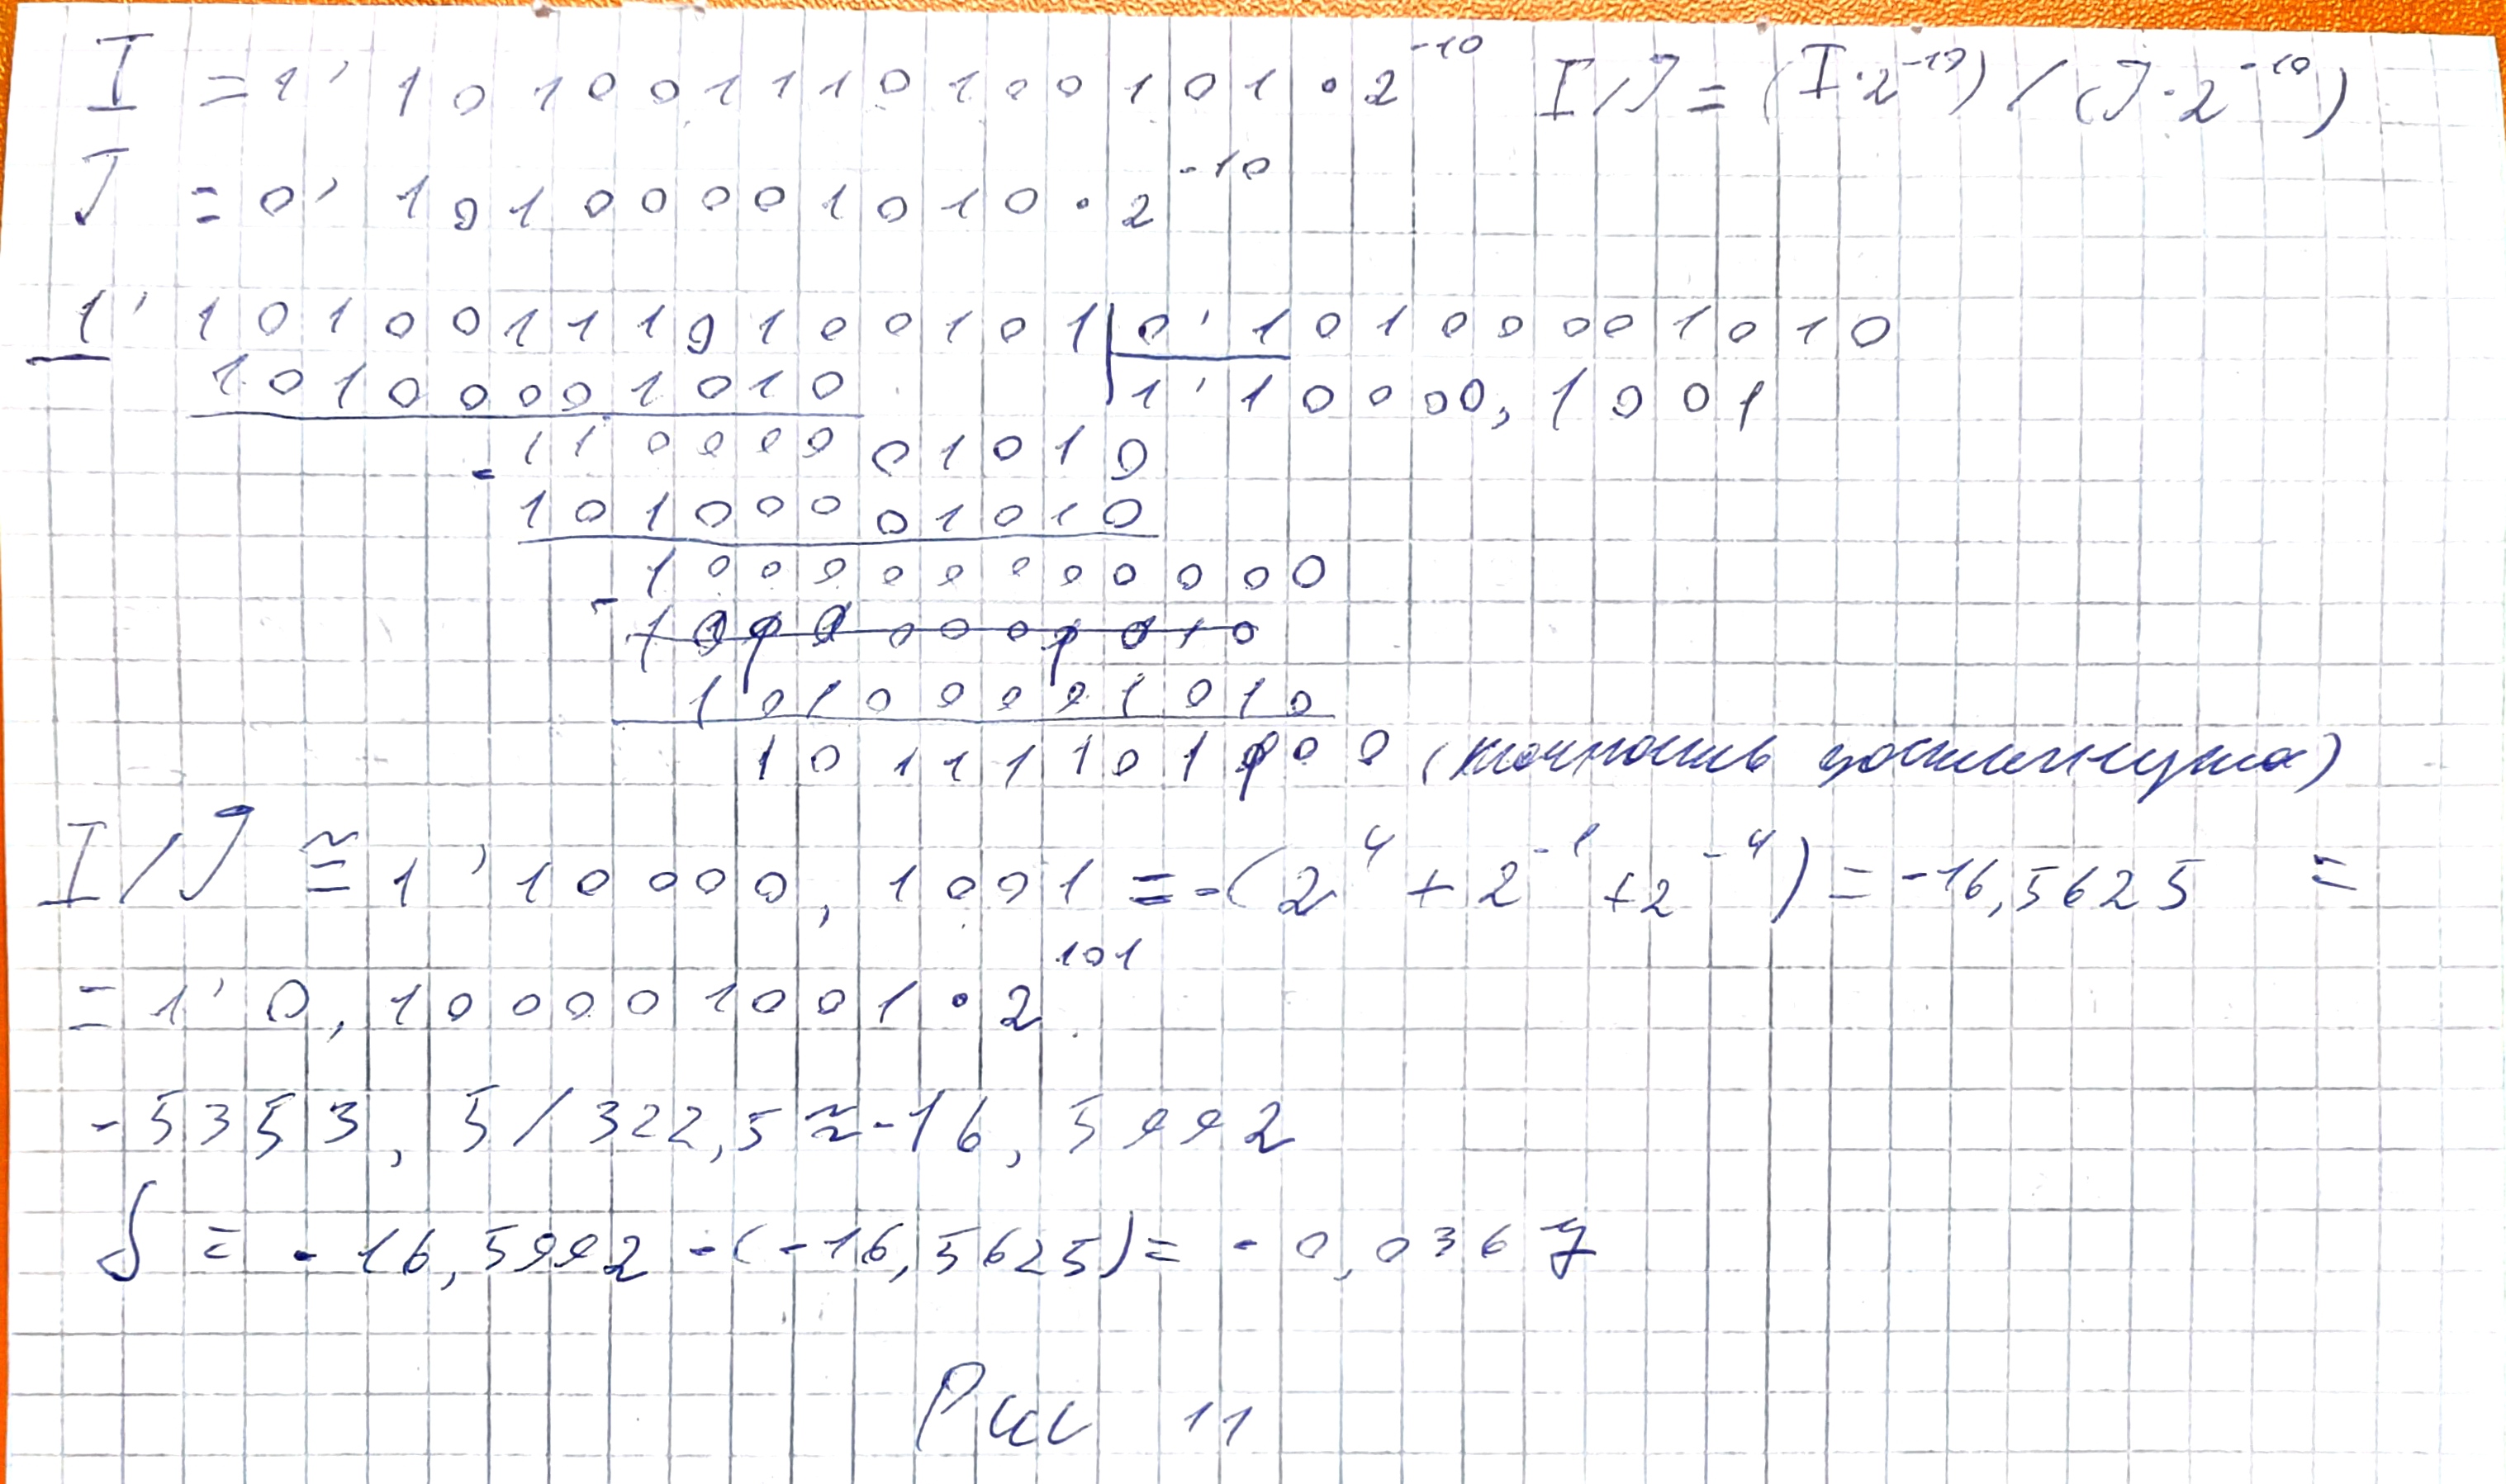 I = 1' 101001110100101 · 2^-10 I/J = (I·2^-10) / (J·2^-10)
J = 0' 10100001010 · 2^-10
1' 101001111010100101 | 0' 10100001010
10100001010 1' 10000, 1001
- 11000001010
10100001010
- 100000000000
10100001010
10111101100 (точность достигнута)
I/J ≅ 1' 10000, 1001 = -(2^4 + 2^-1 + 2^-4) = -16,5625 =
= 1' 0, 100001001 · 2^101
- 5353, 5 / 322,5 ≈ -16, 5992
δ = - 16,5992 - (-16,5625) = - 0,0367
Рис 11